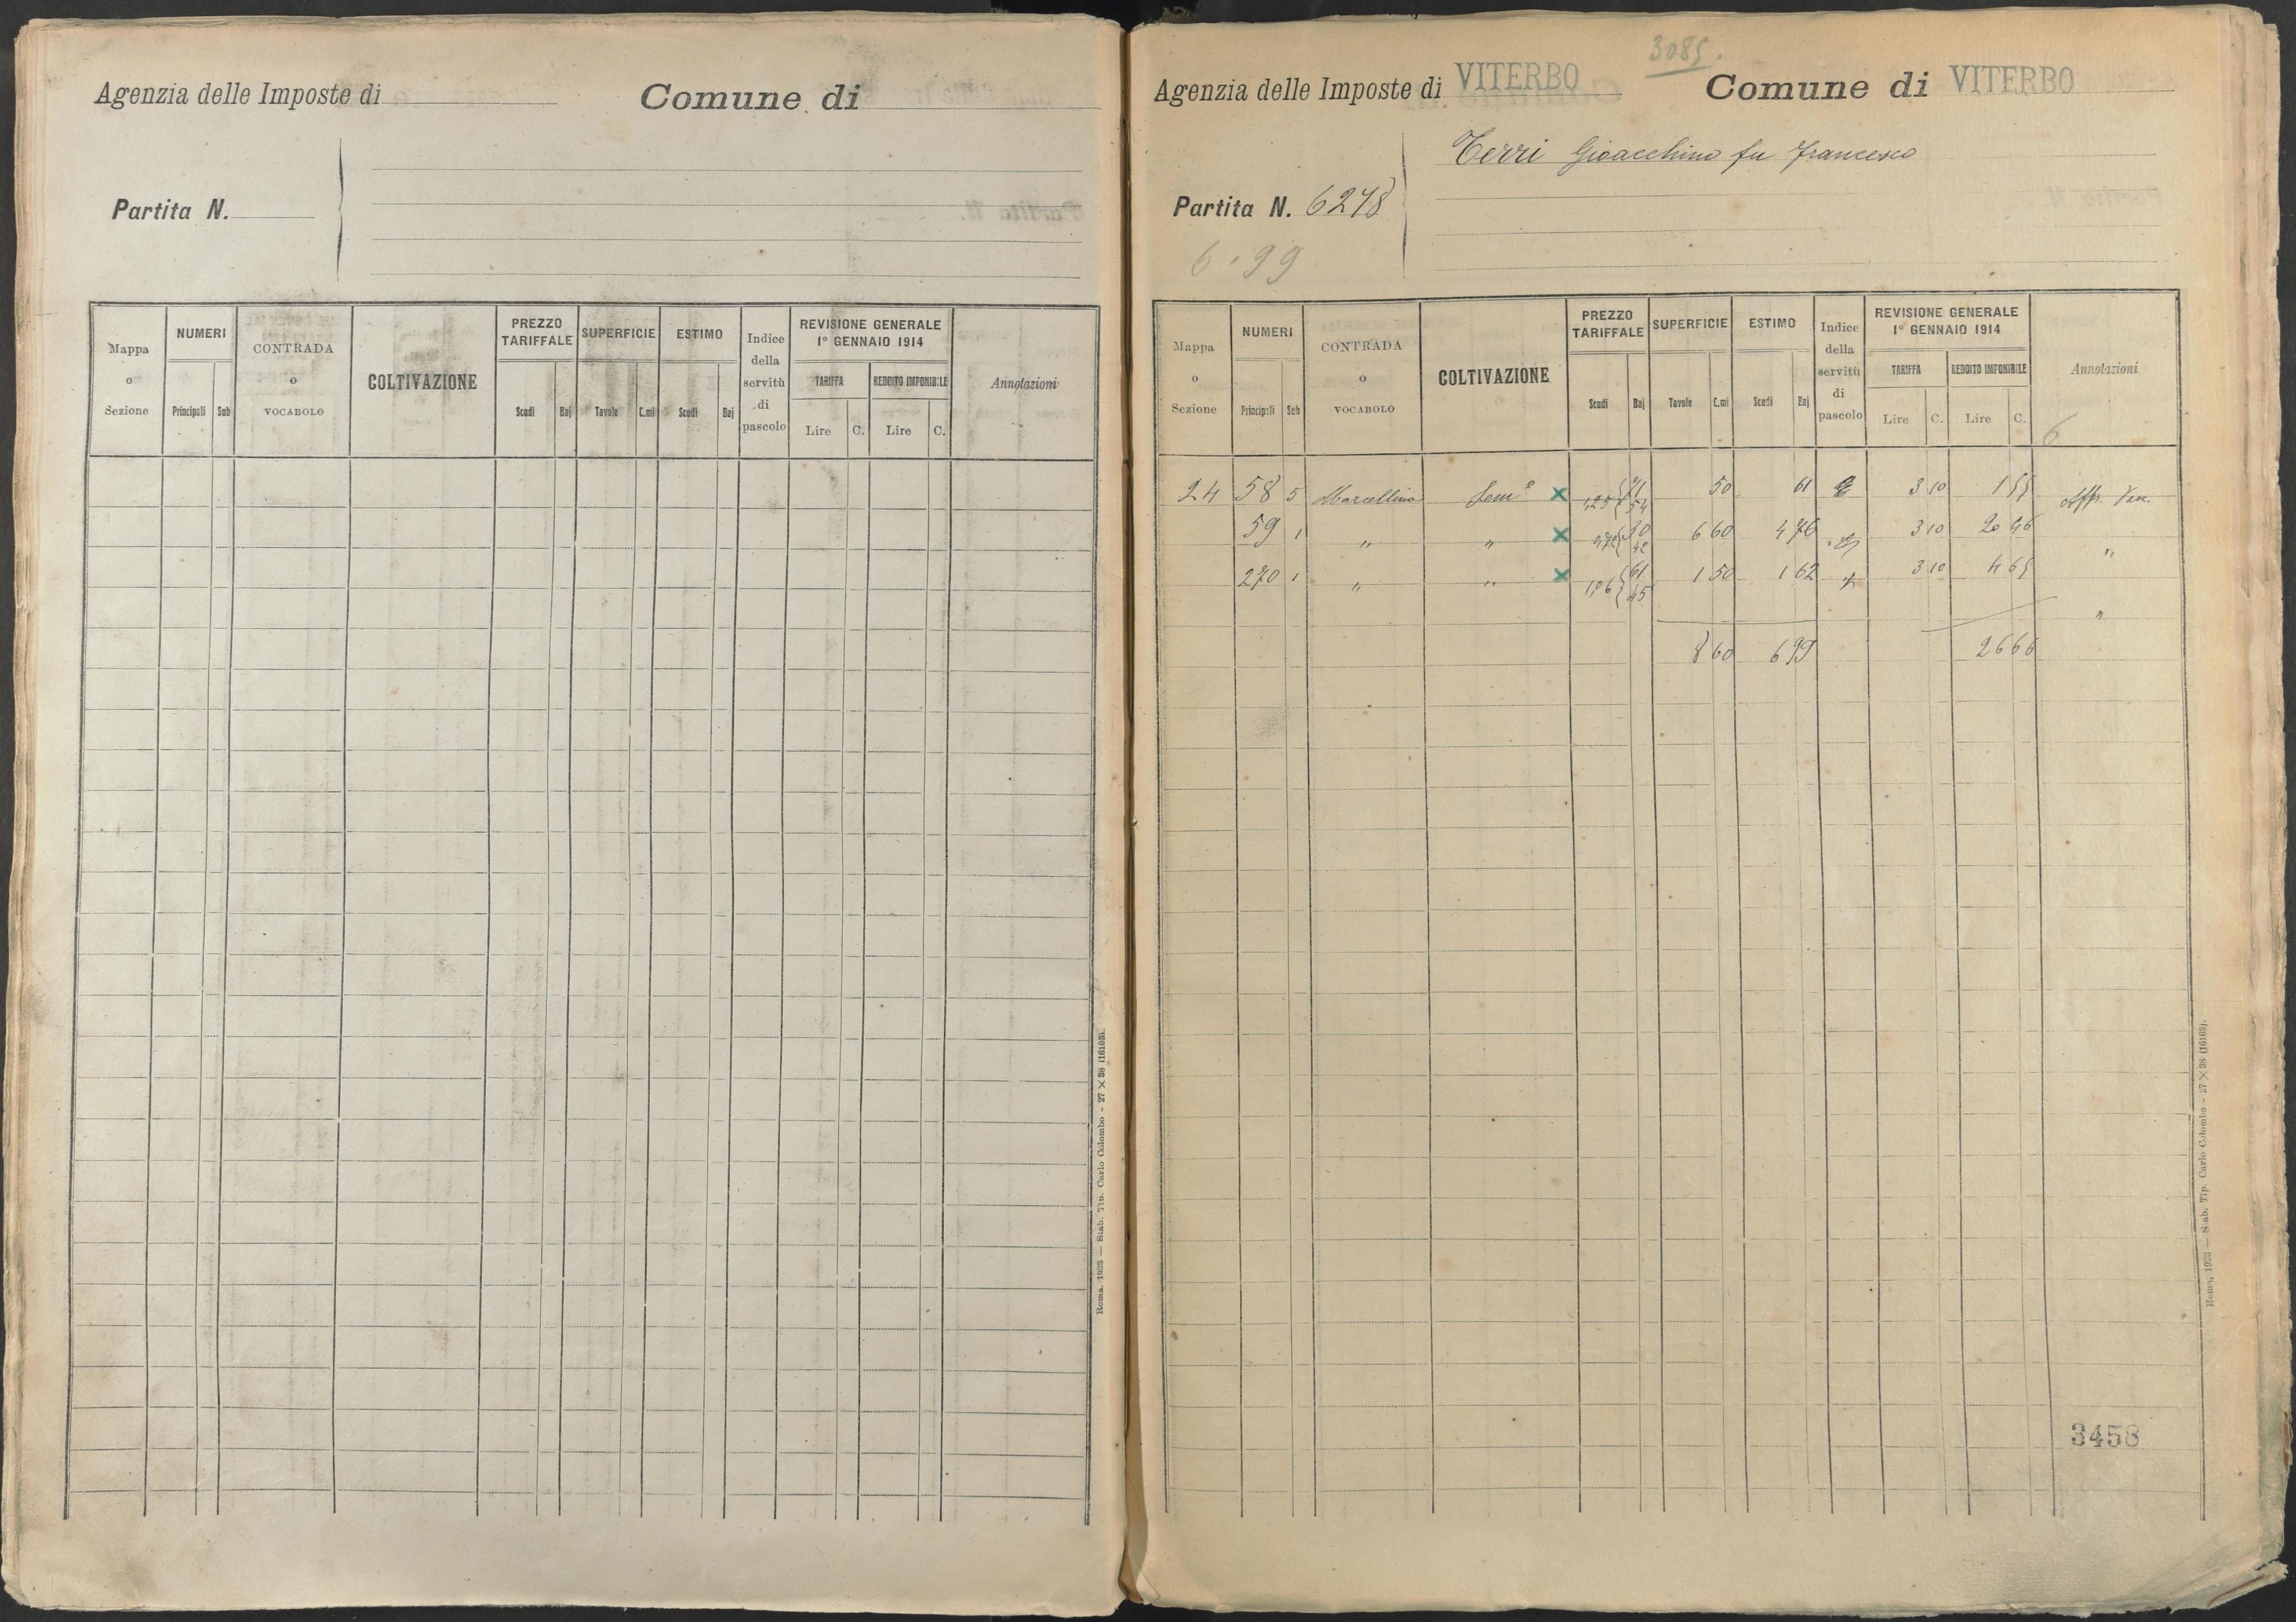 Agenzia delle Imposte di Comune di
Partita N.
Mappa o Sezione NUMERI Principali Sub CONTRADA o VOCABOLO COLTIVAZIONE PREZZO TARIFFALE Scudi Baj SUPERFICIE Tavole C.mi ESTIMO Scudi Baj Indice della servitù di pascolo REVISIONE GENERALE 1° GENNAIO 1914 TARIFFA Lire C. REDDITO IMPONIBILE Lire C. Annotazioni
Roma, 1923 — Stab. Tip. Carlo Colombo - 27 × 38 (16103).
3085.
Agenzia delle Imposte di VITERBO Comune di VITERBO
Terri Gioacchino fu Francesco
Partita N. 6278
6.99
Mappa o Sezione NUMERI Principali Sub CONTRADA o VOCABOLO COLTIVAZIONE PREZZO TARIFFALE Scudi Baj SUPERFICIE Tavole C.mi ESTIMO Scudi Baj Indice della servitù di pascolo REVISIONE GENERALE 1° GENNAIO 1914 TARIFFA Lire C. REDDITO IMPONIBILE Lire C. Annotazioni
6
24 58 5 Marcellino Sem° × 1,25 { 71 54 50 61 3 10 1 55 Affr.
59 1 " " × 0,72 { 30 42 6 60 4 76 3 10 20 46 "
270 1 " " × 1,06 { 61 45 1 50 1 62 3 10 4 65 "
8 60 6 99 26 66
3458
Roma, 1923 — Stab. Tip. Carlo Colombo - 27 × 38 (16103).